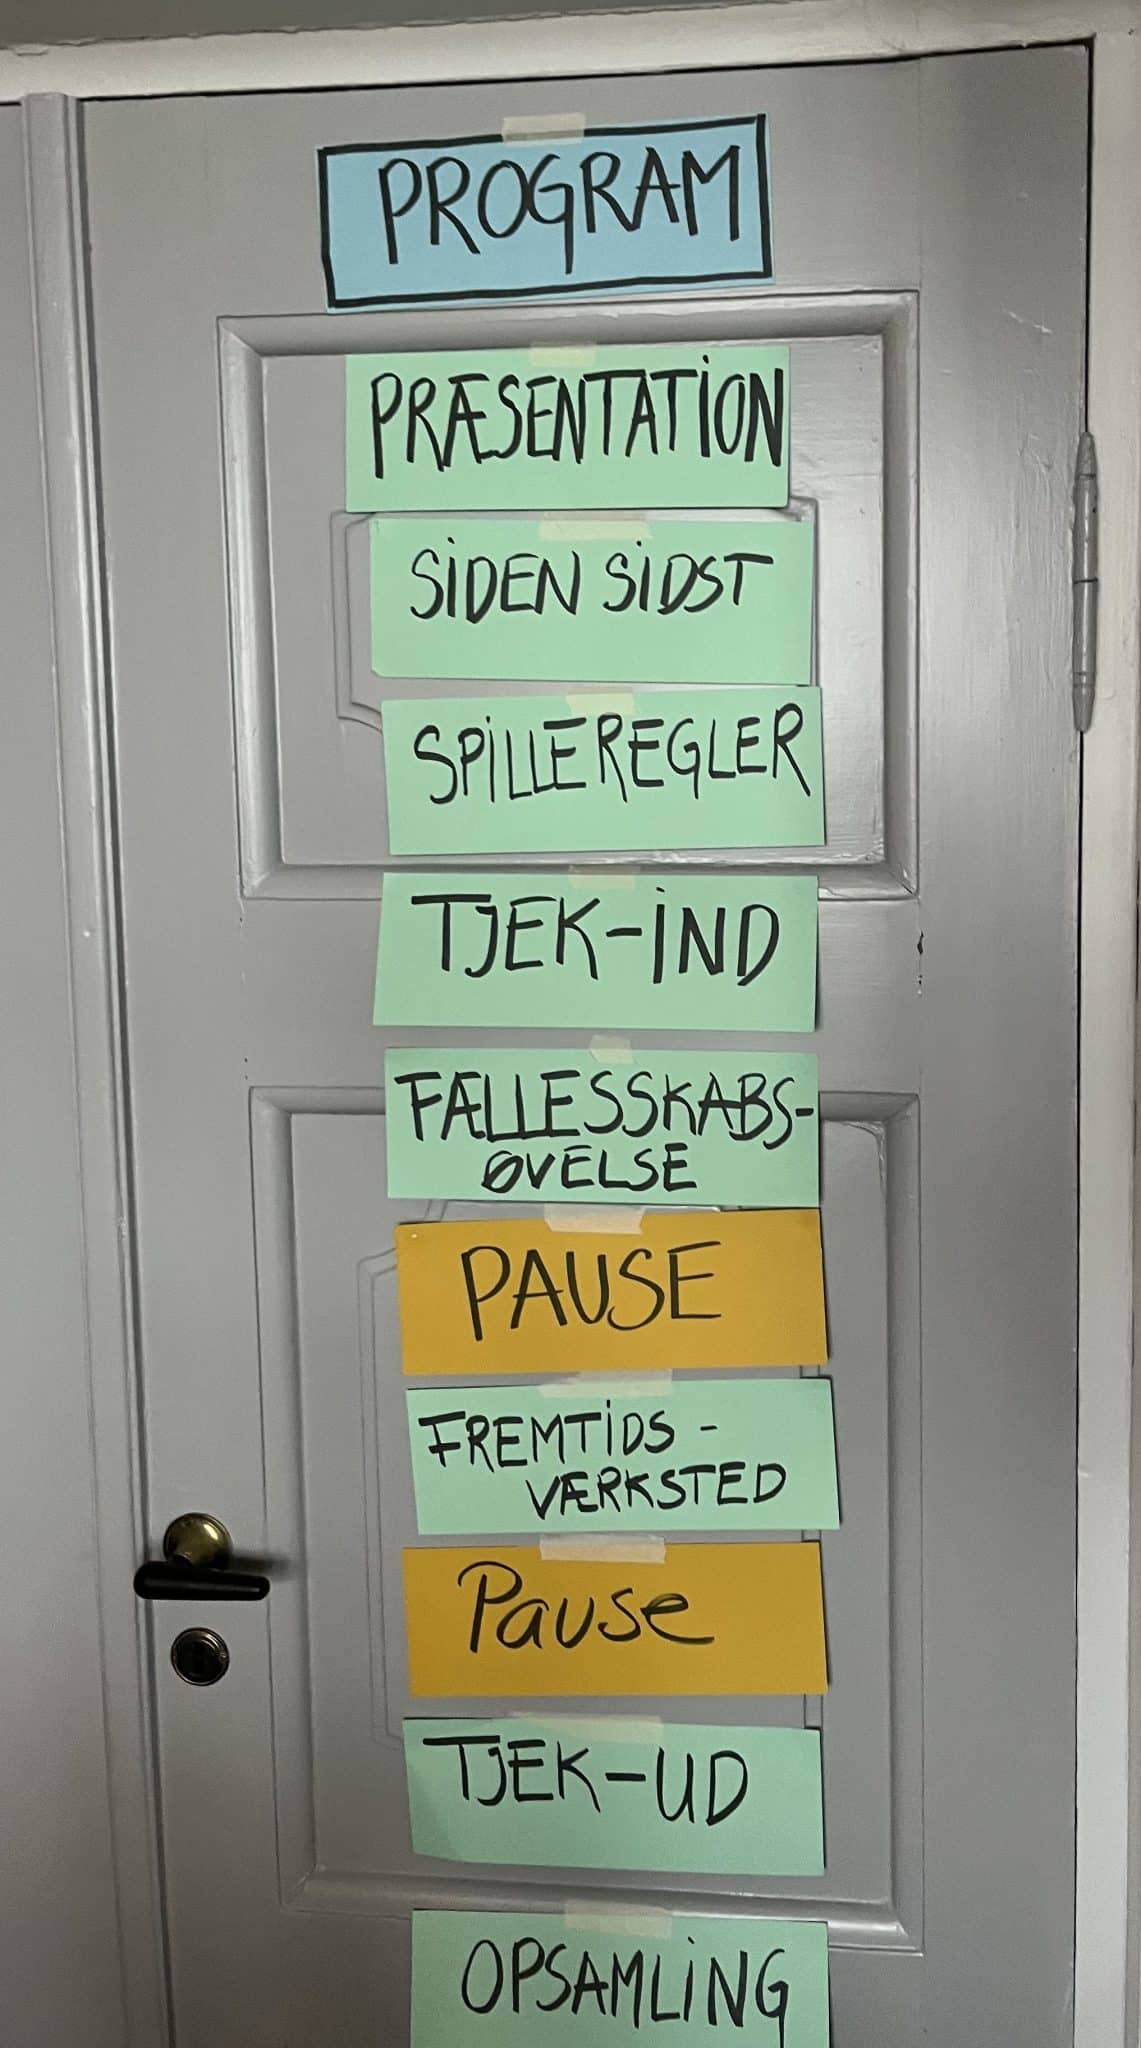 PROGRAM
PRÆSENTATION
SIDEN SIDST
SPILLEREGLER
TJEK-IND
FÆLLESSKABS-
ØVELSE
PAUSE
FREMTIDS-
VÆRKSTED
Pause
TJEK-UD
OPSAMLING